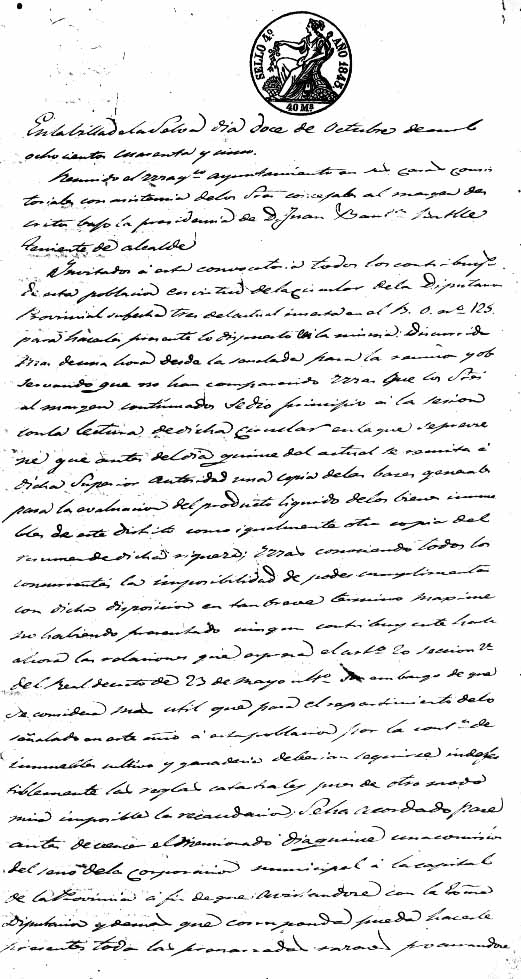 SELLO 4º AÑO 1845
40 Ms
En la villa de la Selva dia doce de Octubre de mil
ochocientos cuarenta y cinco.
Reunido el Magco ayuntamiento en sus casas consis
toriales con asistencia de los Sres concejales al margen des
critos bajo la presidencia de D. Juan Bauta Batlle
teniente de alcalde
Invitados á esta convocatoria todos los contribuyes
de esta poblacion en virtud de la circular de la Diputacion
Provincial su fecha tres del actual inserta en el B. O. nº 125
para hacerles presente lo dispuesto en la misma: Discurrida
mas de una hora desde la señalada para la reunion y ob
servando que no han comparecido mas que los Sres
al margen continuados se dio principio á la sesion
con la lectura de dicha circular en la que se previe
ne que antes del dia quince del actual se remita á
dicha Superior autoridad una copia de las bases generales
para la evaluacion del producto liquido de los bienes inmue
bles de este distrito como igualmente otra copia del
resumen de dicha riqueza; mas conociendo todos los
concurrentes la imposibilidad de poder cumplimentar
con dicha disposicion en tan breve termino maxime
no habiendo presentado ningun contribuyente hasta
ahora las relaciones que expresa el artº 20 seccion 2ª
del Real decreto de 23 de mayo Sin embargo de que
se considera mas util que para el repartimiento de lo
señalado en este año á esta poblacion por la conton de
inmuebles cultivo y ganaderia deberian seguirse indefec
tiblemente las reglas catastrales pues de otro modo
seria imposible la recaudacion, Se ha acordado pase
antes de vencer el mencionado dia quince una comision
del seno de la corporacion municipal á la capital
de la Provincia á fin de que avistandose con la Exma
Diputacion y demas que corresponda pueda hacerle
presentes todas las razones procurandose